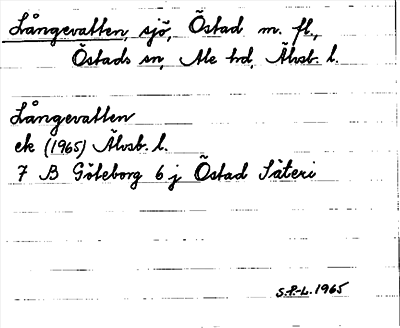 Långevatten sjö, Östad m. fl.,
Östads sn, Ale hd, Älvsb. l.
Långevatten
ek (1965) Älvsb. l.
7 B Göteborg 6 j Östad Säteri
S.F-L. 1965